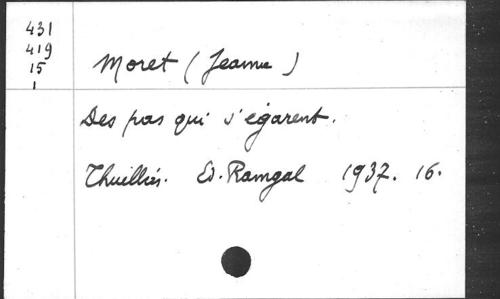 431
419
15
1
Moret (Jeanne)
Des pas qui s'égarent.
Thuillies. Ed. Ramgal 1937. 16.